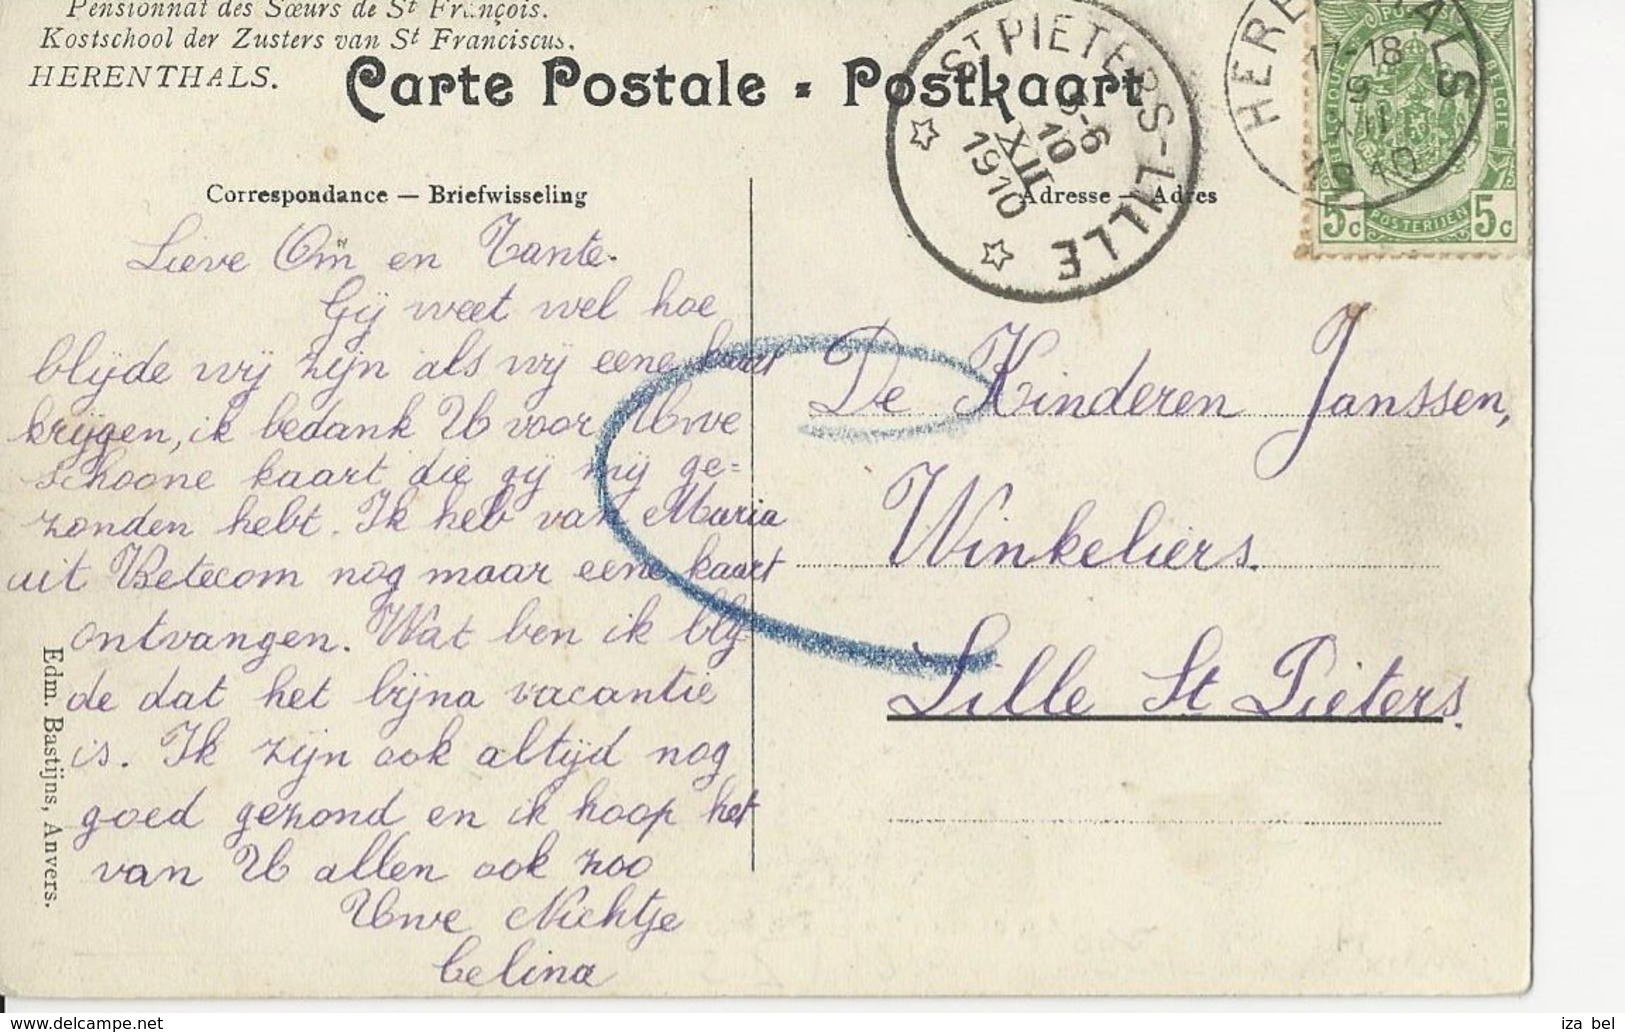 Pensionnat des Sœurs de St François.
Kostschool der Zusters van St Franciscus.
HERENTHALS.
Carte Postale - Postkaart
ST PIETERS-LILLE
5-6
10
XII
1910
HERENTHALS
17-18
9
XII
BELGIQUE
BELGIE
5c POSTERIJEN 5c
Correspondance — Briefwisseling
Adresse — Adres
Lieve Om en Tante.
Gij weet wel hoe
blijde wij zijn als wij eene kaart
krijgen, ik bedank U voor Uwe
schoone kaart die gij mij ge=
zonden hebt. Ik heb van Maria
uit Betecom nog maar eene kaart
ontvangen. Wat ben ik blij-
de dat het bijna vacantie
is. Ik zijn ook altijd nog
goed gezond en ik hoop het
van U allen ook zoo
Uwe Nichtje
Celina
De Kinderen Janssen,
Winkeliers.
Lille St Pieters.
Edm. Bastijns, Anvers.
iza bel